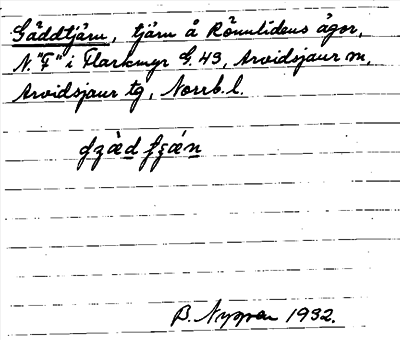 Gäddtjärn, tjärn å Rönnlidens ägor,
N. "F" i Flarkmyr G. 43, Arvidsjaur sn,
Arvidsjaur tg, Norrb. l.
B. Nyman 1932.